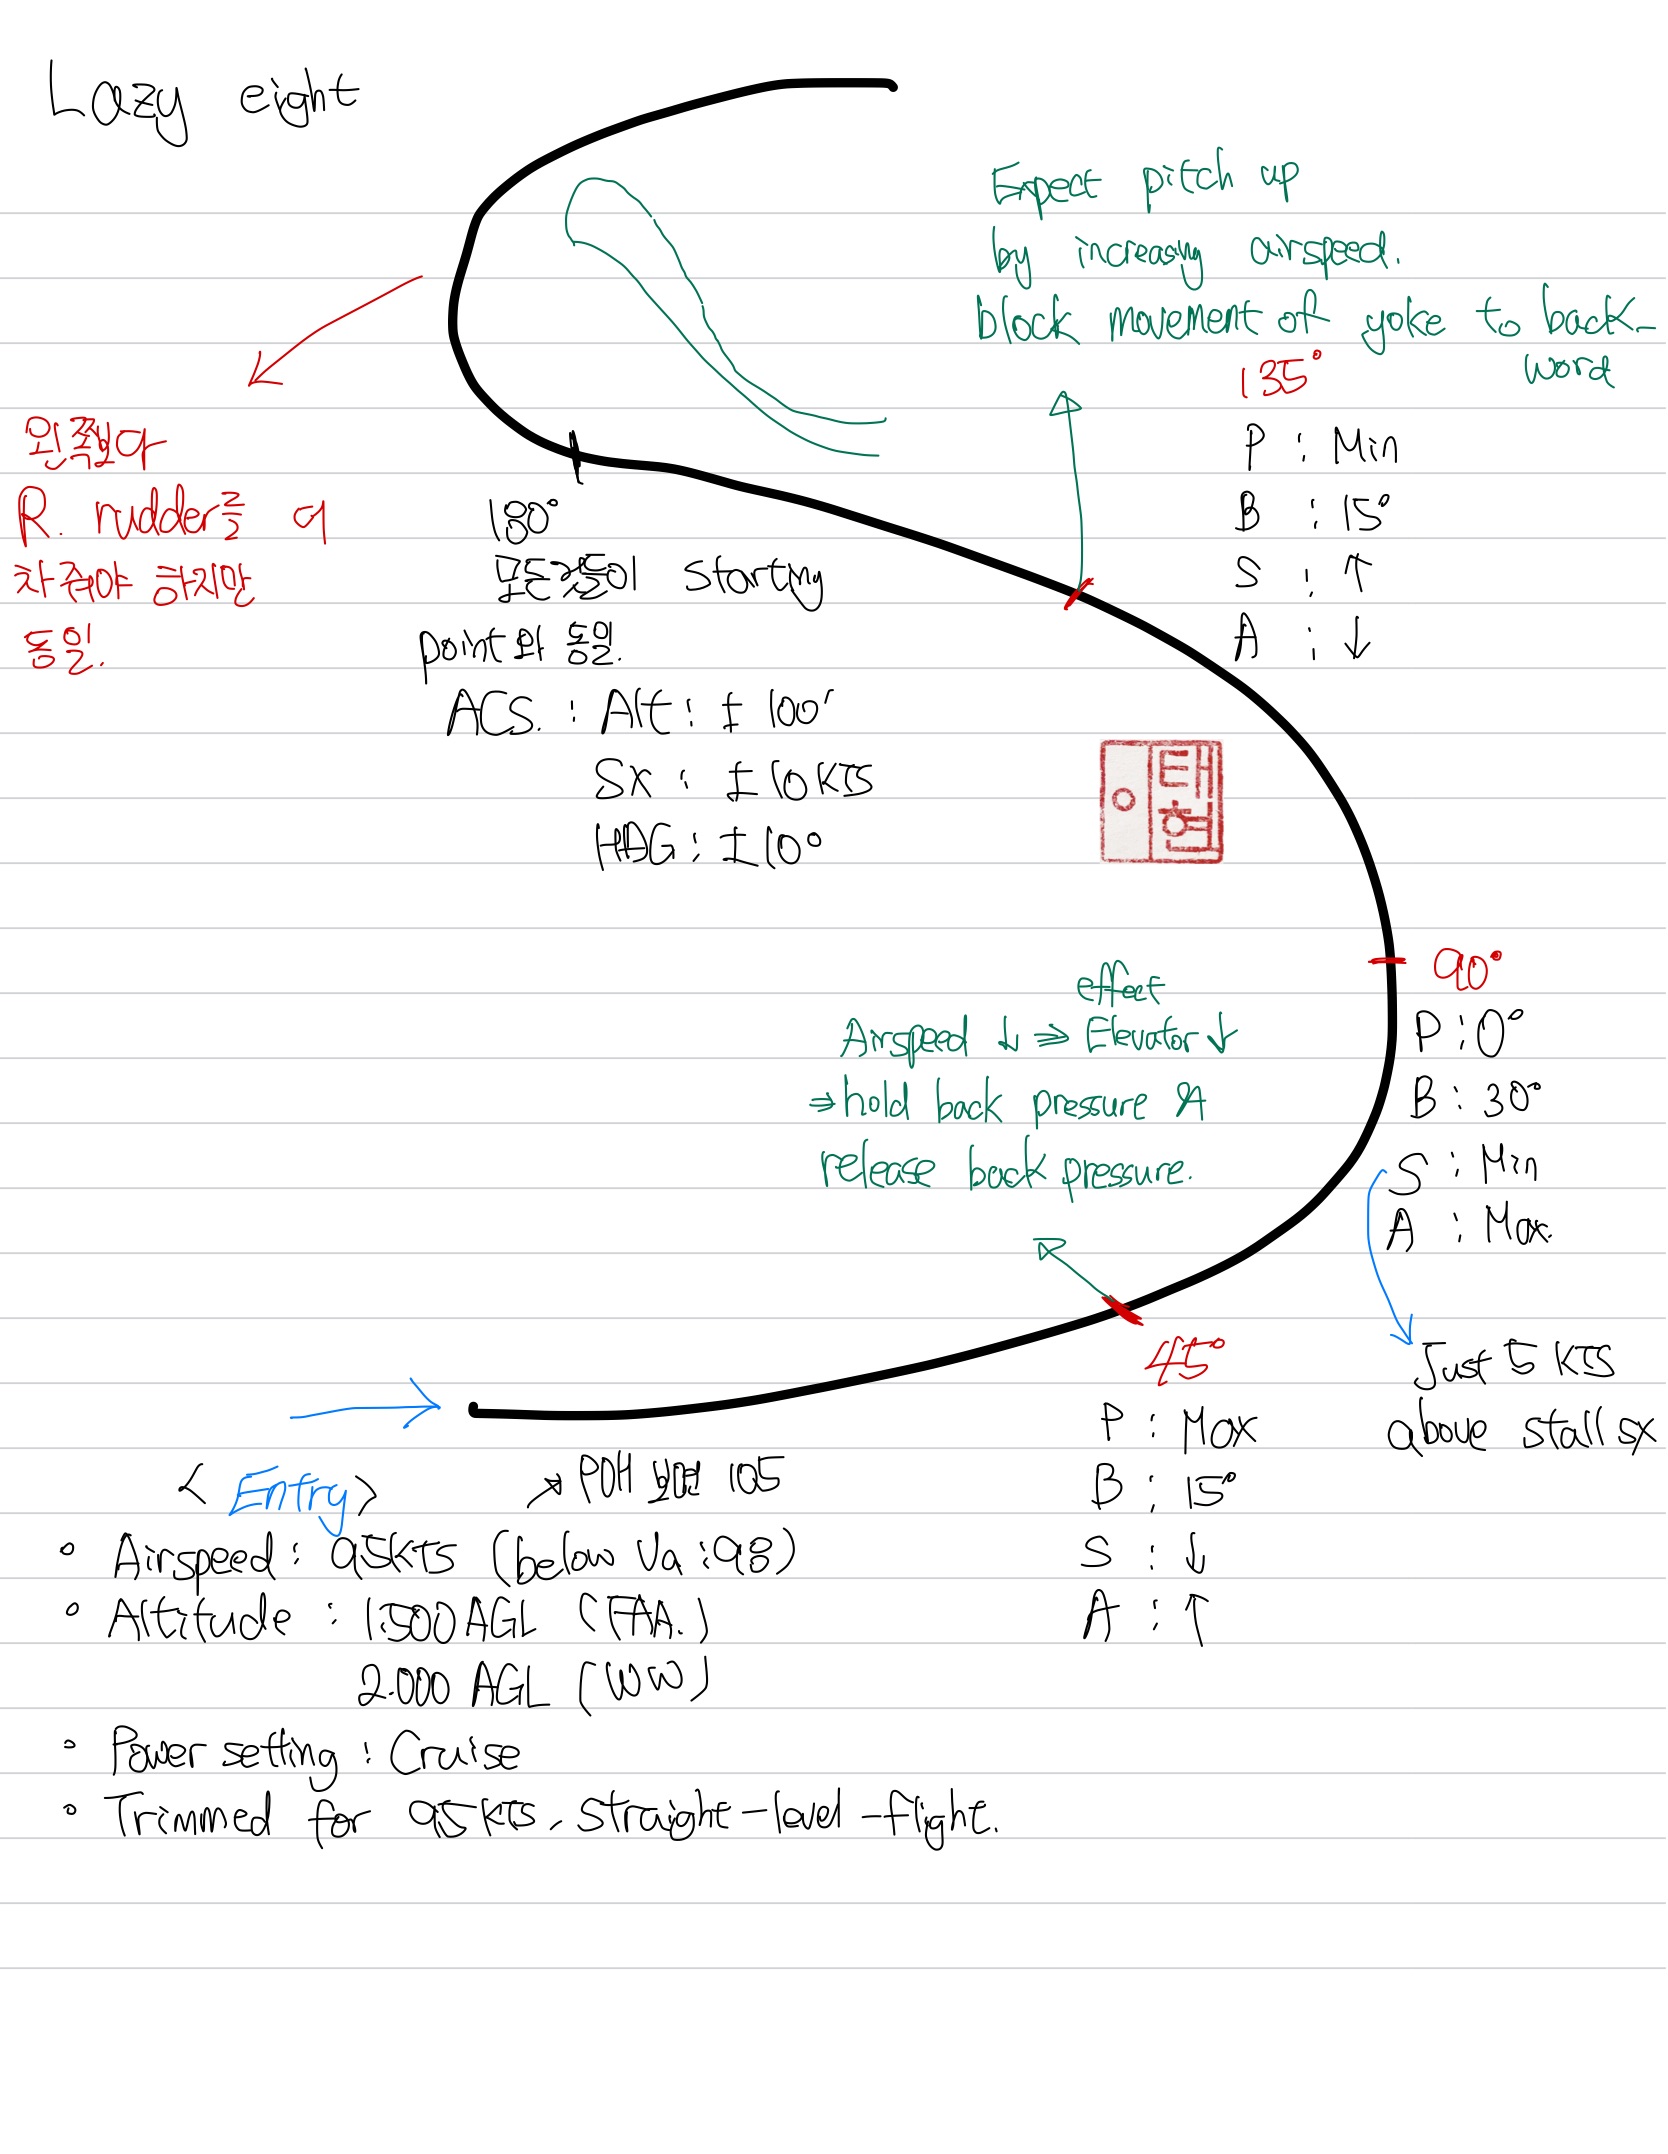 Lazy eight
Expect pitch up
by increasing airspeed.
block movement of yoke to back-
word
135°
P : Min
B : 15°
S : ↑
A : ↓
왼쪽보다
R. rudder를 더
차줘야 하지만
동일.
180°
모든것들이 starting
point와 동일.
ACS. : Alt : ± 100'
Sx : ± 10 KTS
HDG : ± 10°
태
현
90°
P : 0°
B : 30°
S : Min
A : Max.
Just 5 KTS
above stall sx
effect
Airspeed ↓ ⇒ Elevator ↓
⇒ hold back pressure 후
release back pressure.
45°
P : Max
B : 15°
S : ↓
A : ↑
< Entry >
↗ POH 보면 105
• Airspeed : 95KTS (below Va : 98)
• Altitude : 1.500 AGL (FAA.)
2.000 AGL (WW)
• Power setting : Cruise
• Trimmed for 95KTS, straight-level-flight.